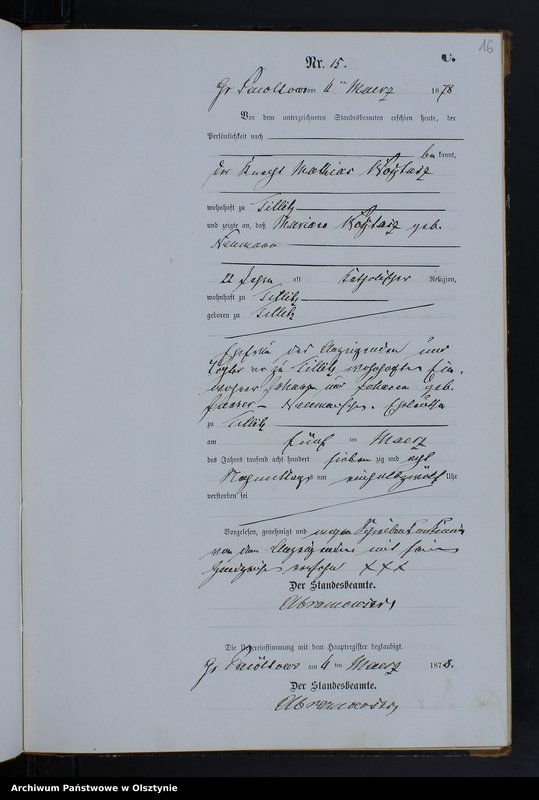 16
C.
Nr. 15.
Gr. Pacoltowo am 11 ten Maerz 1878
Vor dem unterzeichneten Standesbeamten erschien heute, der
Persönlichkeit nach
be kannt,
der Knecht Mathias
wohnhaft zu Tillitz
und zeigte an, daß geb.
Neumann
22 Jahre alt Katholischer Religion,
wohnhaft zu Tillitz
geboren zu Tillitz
Ehefrau des Anzeigenden und
Tochter der zu Tillitz wohnhaften Ein-
wohner Johann und geb.
Neumannschen Eheleute
zu Tillitz
am fünf ten Maerz
des Jahres tausend acht hundert sieben zig und acht
Nachmittags um Uhr
verstorben sei
Vorgelesen, genehmigt und wegen
von dem Anzeigenden mit seinem
Handzeichen versehen XXX
Der Standesbeamte.
Abramowski
Die Uebereinstimmung mit dem Hauptregister beglaubigt.
Gr. Pacoltowo am 11 ten Maerz 1878.
Der Standesbeamte.
Abramowski
Archiwum Państwowe w Olsztynie